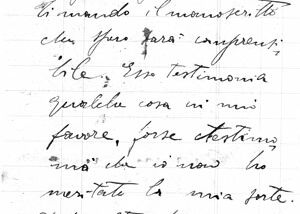 Ti mando il manoscritto
che spero sarà comprensi
bile. Esso testimonia
qualche cosa in mio
favore, forse testimo,
nia che io non ho
meritato la mia sorte.